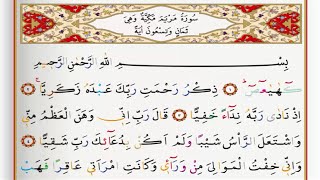 سُورَةُ مَرْيَمَ مَكِّيَّةٌ وَهِيَ
ثَمَانٍ وَتِسْعُونَ آيَةً
بِسْمِ اللَّهِ الرَّحْمَٰنِ الرَّحِيمِ
كٓهيعٓصٓ ۝١ ذِكْرُ رَحْمَتِ رَبِّكَ عَبْدَهُ زَكَرِيَّا ۝٢
إِذْ نَادَىٰ رَبَّهُ نِدَاءً خَفِيًّا ۝٣ قَالَ رَبِّ إِنِّي وَهَنَ الْعَظْمُ مِنِّي
وَاشْتَعَلَ الرَّأْسُ شَيْبًا وَلَمْ أَكُنْ بِدُعَائِكَ رَبِّ شَقِيًّا ۝٤
وَإِنِّي خِفْتُ الْمَوَالِيَ مِنْ وَرَائِي وَكَانَتِ امْرَأَتِي عَاقِرًا فَهَبْ